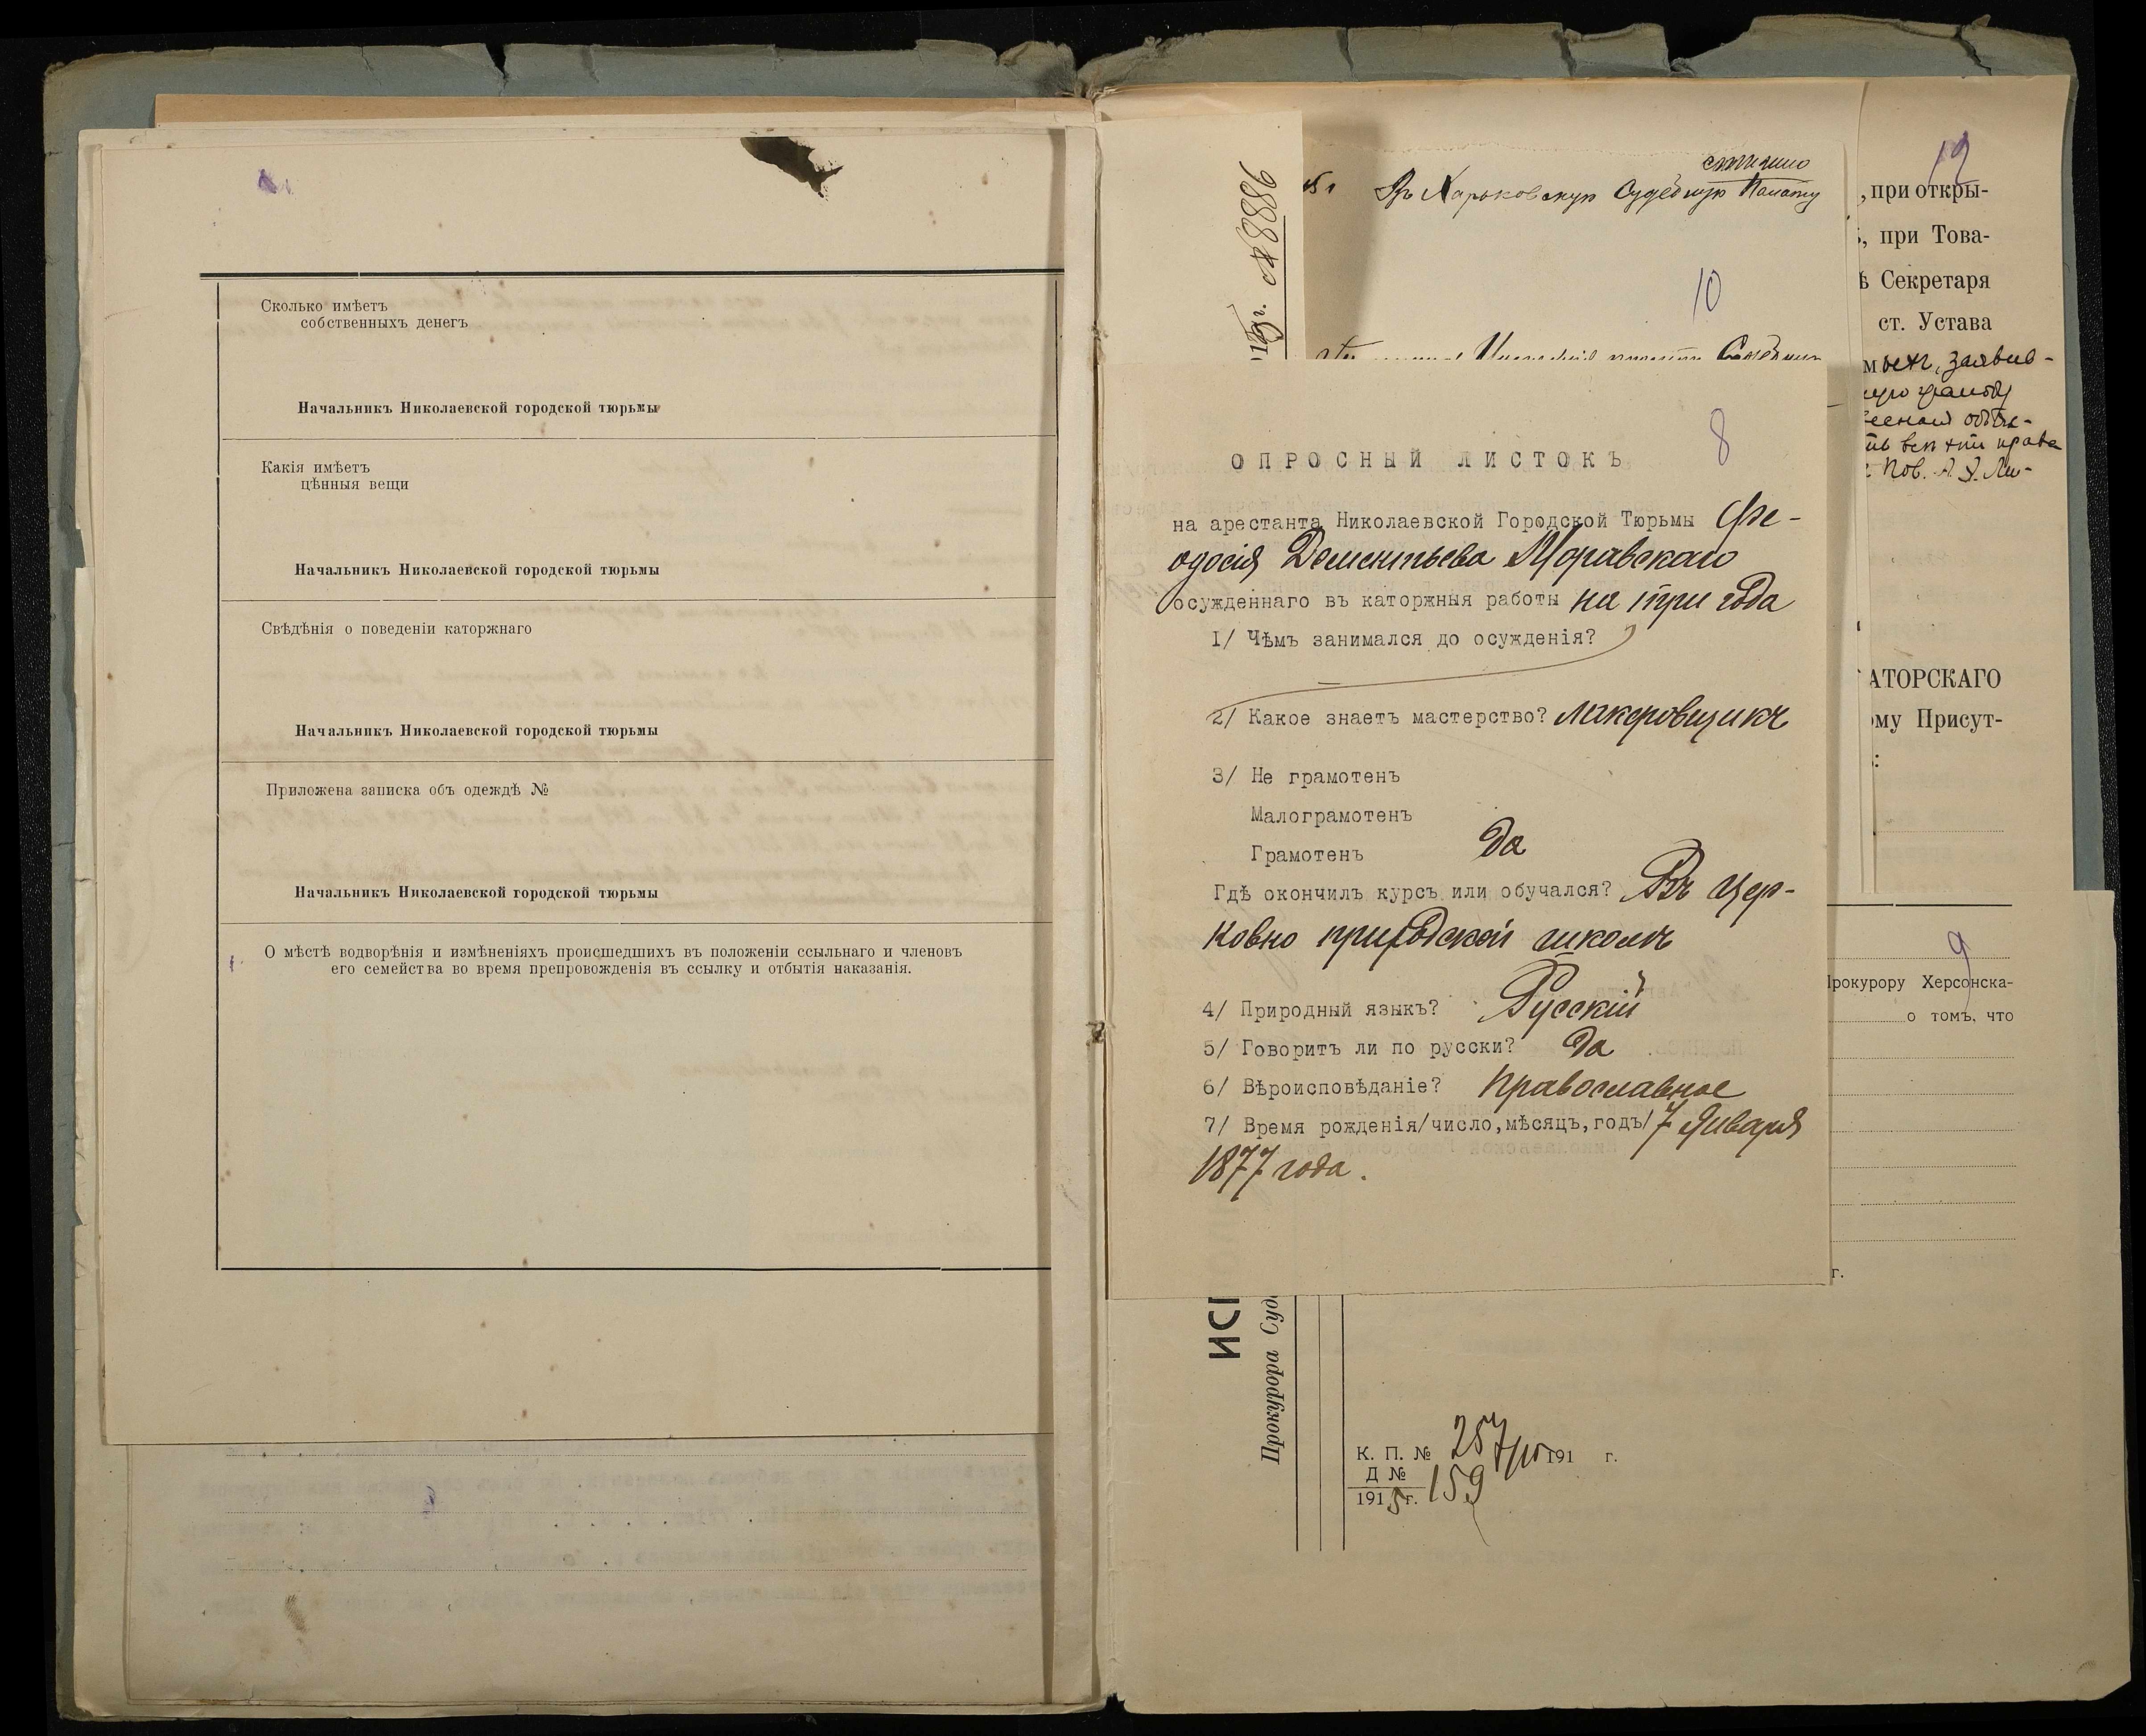 Сколько имѣетъ
собственныхъ денегъ
Начальникъ Николаевской городской тюрьмы
Какія имѣетъ
цѣнныя вещи
Начальникъ Николаевской городской тюрьмы
Свѣдѣнія о поведеніи каторжнаго
Начальникъ Николаевской городской тюрьмы
Приложена записка объ одеждѣ №
Начальникъ Николаевской городской тюрьмы
О мѣстѣ водворѣнія и измѣненіяхъ происшедшихъ въ положеніи ссыльнаго и членовъ
его семейства во время препровожденія въ ссылку и отбытія наказанія.
№ 8886
Въ Харьковскую Судебную Палату
10
8
ОПРОСНЫЙ ЛИСТОКЪ
на арестанта Николаевской Городской Тюрьмы Фе-
одосія Дементьева Моравскаго
осужденнаго въ каторжныя работы на три года
1/ Чѣмъ занимался до осужденія?
2/ Какое знаетъ мастерство? Лакировщикъ
3/ Не грамотенъ
Малограмотенъ
Грамотенъ Да
Гдѣ окончилъ курсъ или обучался? Въ Цер-
ковно приходской школѣ
4/ Природный языкъ? Русскій
5/ Говоритъ ли по русски? Да
6/ Вѣроисповѣданіе? Православное
7/ Время рожденія/число,мѣсяцъ,годъ/ 7 Января
1877 года.
12
, при откры-
, при Това-
ѣ Секретаря
ст. Устава
мыхъ, заявив-
АТОРСКАГО
ому Присут-
9
Прокурору Херсонска-
о томъ, что
г.
Прокурора Суд
К. П. № 257/15 191 г.
Д № 159
1915 г.